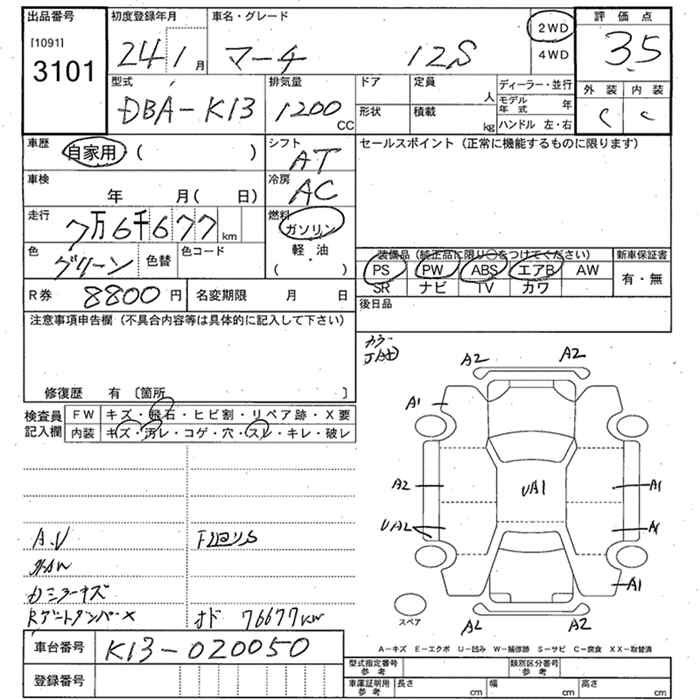 出品番号
[1091]
3101
初度登録年月
24 1 月
車名・グレード
マーチ 12S
2WD
4WD
評価点
3.5
外装 内装
C C
型式
DBA-K13
排気量
1200
CC
ドア
定員
人
形状
積載
kg
ディーラー・並行
モデル年式 年
ハンドル 左・右
車歴
自家用・( )
シフト
AT
セールスポイント (正常に機能するものに限ります)
車検
年 月( 日)
冷房
AC
走行
7万6千677 km
燃料
ガソリン
軽・油
( )
色
グリーン
色替
色コード
装備品 (純正品に限り○をつけてください)
新車保証書
PS PW ABS エアB AW
SR ナビ TV カワ
有・無
R券 8800 円
名変期限 月 日
後日品
注意事項申告欄 (不具合内容等は具体的に記入して下さい)
修復歴 有 〔箇所 〕
検査員記入欄
FW キズ・飛石・ヒビ割・リペア跡・X要
内装 キズ・汚レ・コゲ・穴・スレ・キレ・破レ
A2 A2
A1
A2 UA1 A1
UA2 A1
A1
A2 A2
スペア
オド 76677km
車台番号 K13-020050
登録番号
A-キズ E-エクボ U-凹み W-補修跡 S-サビ C-腐食 XX-取替済
型式指定番号 参考
類別区分番号 参考
車庫証明用 参考
長さ cm 幅 cm 高さ cm